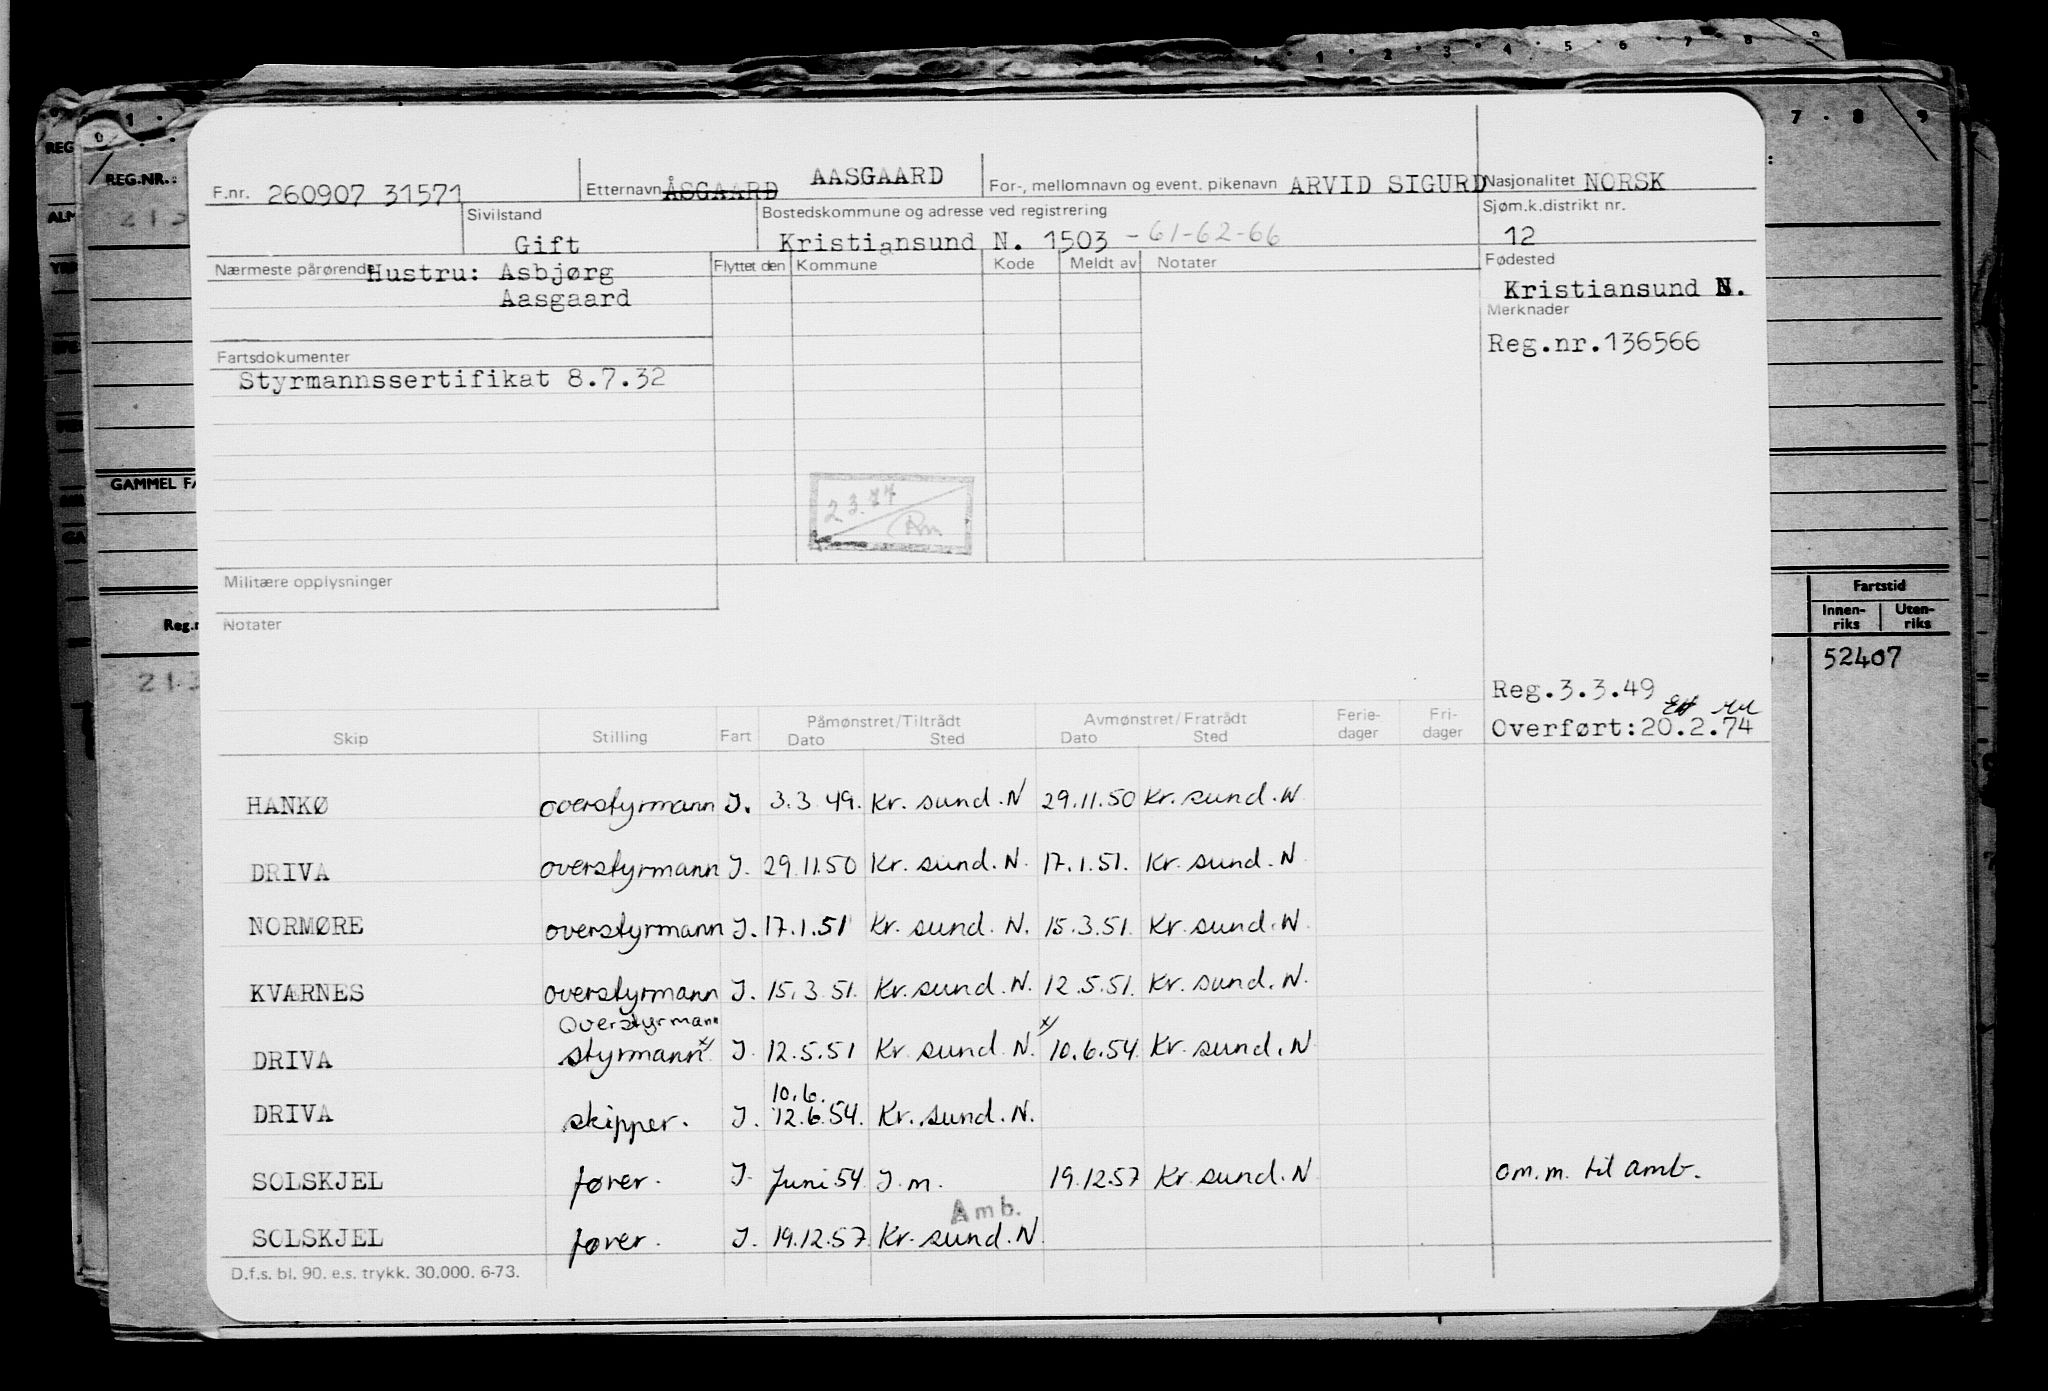 1 2 3 4 5 6 7 8 9
0 1 7 8 9
REG REG.NR.:
F.nr. 260907 31571 Etternavn ÅSGAARD AASGAARD For-, mellomnavn og event. pikenavn ARVID SIGURD Nasjonalitet NORSK
Sivilstand Gift
Bostedskommune og adresse ved registrering
Kristiansund N. 1503 - 61-62-66
Sjøm.k.distrikt nr.
12
Nærmeste pårørende Hustru: Asbjørg
Aasgaard
Flyttet den Kommune Kode Meldt av Notater
Fødested
Kristiansund N.
Merknader
Reg.nr.136566
Fartsdokumenter
Styrmannssertifikat 8.7.32
GAMMEL FA
23.77
Rm
Militære opplysninger
Notater
Fartstid
Innen-riks Uten-riks
52407
Reg.n
Reg.3.3.49
Overført:20.2.74
Skip Stilling Fart Påmønstret/Tiltrådt Avmønstret/Fratrådt Ferie-dager Fri-dager
Dato Sted Dato Sted
HANKØ overstyrmann I. 3.3 49. Kr. sund. N 29.11.50 Kr. sund. N
DRIVA overstyrmann I. 29.11.50 Kr. sund. N. 17.1.51. Kr. sund. N
NORMØRE overstyrmann I. 17.1.51 Kr. sund. N. 15.3.51. Kr. sund. N
KVÆRNES overstyrmann I. 15.3 51. Kr. sund. N. 12.5.51. Kr. sund. N.
Overstyrmann
DRIVA styrmann x/ I. 12.5.51 Kr. sund. N. x/ 10.6.54. Kr. sund. N
10.6.
DRIVA skipper. I. 12.6.54. Kr. sund. N.
SOLSKJEL fører. I. Juni 54 I. m. 19.12.57 Kr. sund. N om.m. til amb.
Amb.
SOLSKJEL fører. I. 19.12.57 Kr. sund. N.
D.f.s. bl. 90. e.s. trykk. 30.000. 6-73.